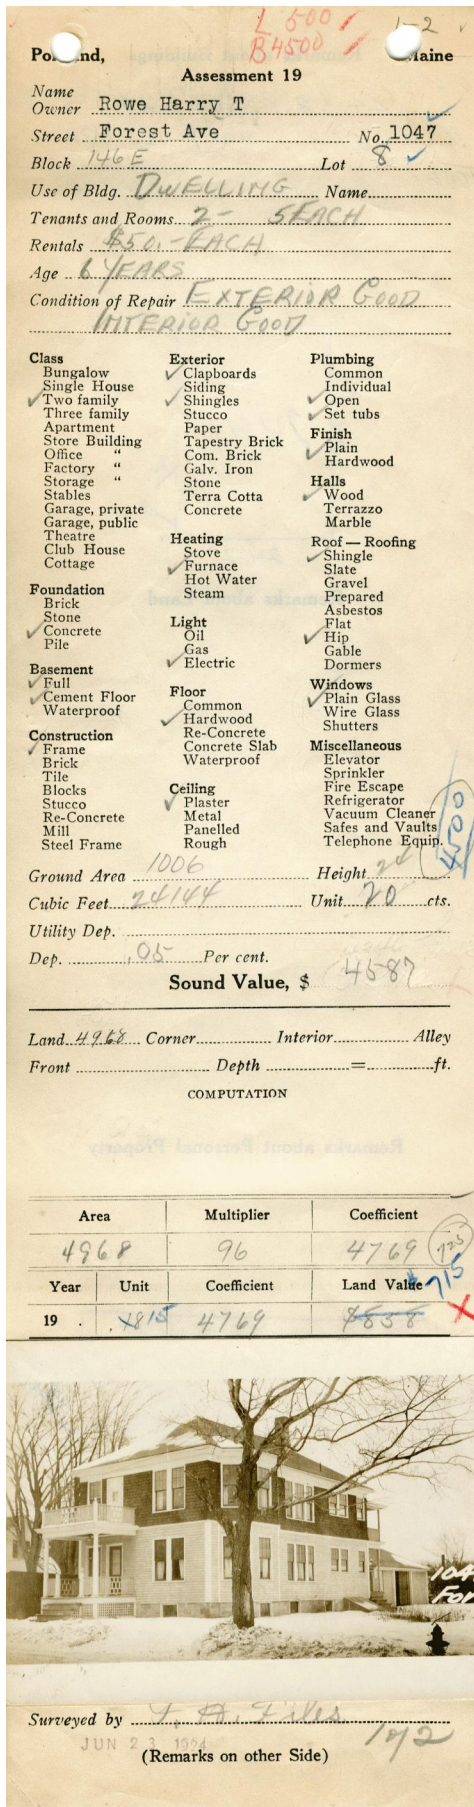 L 500
B 4500
1-2
Portland, Maine
Assessment 19
Name
Owner Rowe Harry T
Street Forest Ave No. 1047
Block 146 E Lot 8
Use of Bldg. DWELLING Name
Tenants and Rooms 2 - 5 EACH
Rentals $50.- EACH
Age 6 YEARS
Condition of Repair EXTERIOR GOOD
INTERIOR GOOD
Class
Bungalow
Single House
✓ Two family
Three family
Apartment
Store Building
Office "
Factory "
Storage "
Stables
Garage, private
Garage, public
Theatre
Club House
Cottage
Foundation
Brick
Stone
✓ Concrete
Pile
Basement
✓ Full
✓ Cement Floor
Waterproof
Construction
✓ Frame
Brick
Tile
Blocks
Stucco
Re-Concrete
Mill
Steel Frame
Exterior
✓ Clapboards
Siding
✓ Shingles
Stucco
Paper
Tapestry Brick
Com. Brick
Galv. Iron
Stone
Terra Cotta
Concrete
Heating
Stove
✓ Furnace
Hot Water
Steam
Light
Oil
Gas
✓ Electric
Floor
Common
✓ Hardwood
Re-Concrete
Concrete Slab
Waterproof
Ceiling
✓ Plaster
Metal
Panelled
Rough
Plumbing
Common
Individual
✓ Open
✓ Set tubs
Finish
✓ Plain
Hardwood
Halls
✓ Wood
Terrazzo
Marble
Roof — Roofing
✓ Shingle
Slate
Gravel
Prepared
Asbestos
Flat
✓ Hip
Gable
Dormers
Windows
✓ Plain Glass
Wire Glass
Shutters
Miscellaneous
Elevator
Sprinkler
Fire Escape
Refrigerator
Vacuum Cleaner
Safes and Vaults
Telephone Equip.
4500
Ground Area 1006 Height 24
Cubic Feet 24144 Unit 20 cts.
Utility Dep.
Dep. .05 Per cent.
Sound Value, $ 4587
Land 4968 Corner Interior Alley
Front Depth = ft.
COMPUTATION
Remarks about Personal Property
Area Multiplier Coefficient
4968 96 4769 725
Year Unit Coefficient Land Value 715
19 . .1815 4769 $858 X
104
For
Surveyed by F. A. Files
JUN 23 1924
1 of 2
(Remarks on other Side)